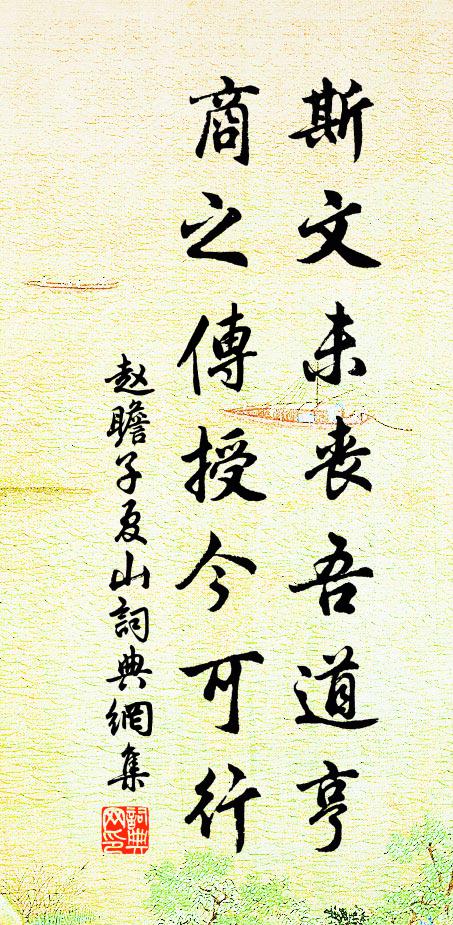 斯文未丧吾道亨
商之傳授今可行
赵瞻子夏山詞典網集
詞典网印